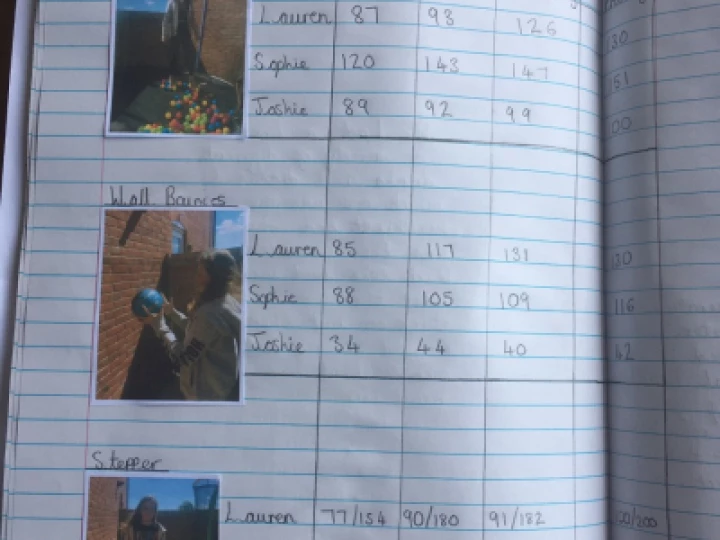 Lauren 87 93 126 30
Sophie 120 143 147 51
Joshie 89 92 99 00
Wall Bounces
Lauren 85 117 131 130
Sophie 88 105 109 116
Joshie 34 44 40 42
Stepper
Lauren 77/154 90/180 91/182 /200